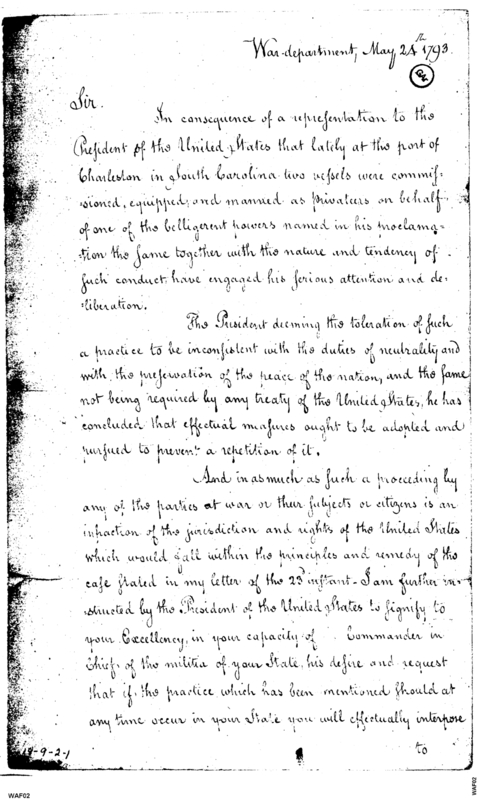 War department, May 24th 1793.
Sir.
In consequence of a representation to the
President of the United States that lately at the port of
Charleston in South Carolina two vessels were commis-
sioned, equipped, and manned as privateers on behalf
of one of the belligerent powers named in his proclama-
tion the same together with the nature and tendency of
such conduct have engaged his serious attention and de-
liberation.
The President deeming the toleration of such
a practice to be inconsistent with the duties of neutrality and
with the preservation of the peace of the nation, and the same
not being required by any treaty of the United States, he has
concluded that effectual measures ought to be adopted and
pursued to prevent a repetition of it.
And in as much as such a proceeding by
any of the parties at war or their subjects or citizens is an
infraction of the jurisdiction and rights of the United States
which would fall within the principles and remedy of the
case stated in my letter of the 23d instant - I am further in-
structed by the President of the United States to signify to
your Excellency, in your capacity of Commander in
Chief of the militia of your State, his desire and request
that if the practice which has been mentioned should at
any time occur in your State you will effectually interpose
to
19-9-2-1
WAF02
WAF02